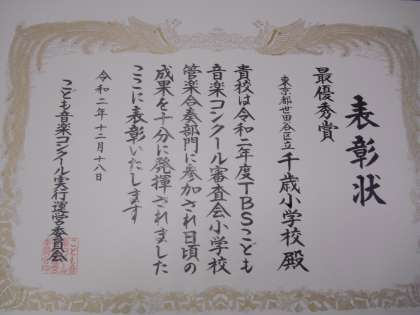 表彰状
最優秀賞
東京都世田谷区立千歳小学校殿
貴校は令和二年度TBSこども
音楽コンクール審査会小学校
管楽合奏部門に参加され日頃の
成果を十分に発揮されました
ここに表彰いたします
令和二年十二月十八日
こども音楽コンクール実行運営委員会